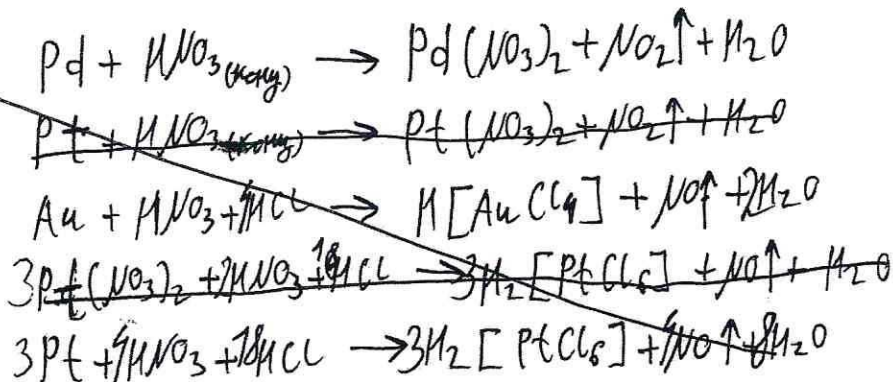 Pd + HNO₃(конц) → Pd(NO₃)₂ + NO₂↑ + H₂O
Pt + HNO₃(конц) → Pt(NO₃)₂ + NO₂↑ + H₂O
Au + HNO₃ + 4HCl → H[AuCl₄] + NO↑ + 2H₂O
3Pt(NO₃)₂ + 2HNO₃ + 18HCl → 3H₂[PtCl₆] + NO↑ + H₂O
3Pt + 4HNO₃ + 18HCl → 3H₂[PtCl₆] + 4NO↑ + 8H₂O